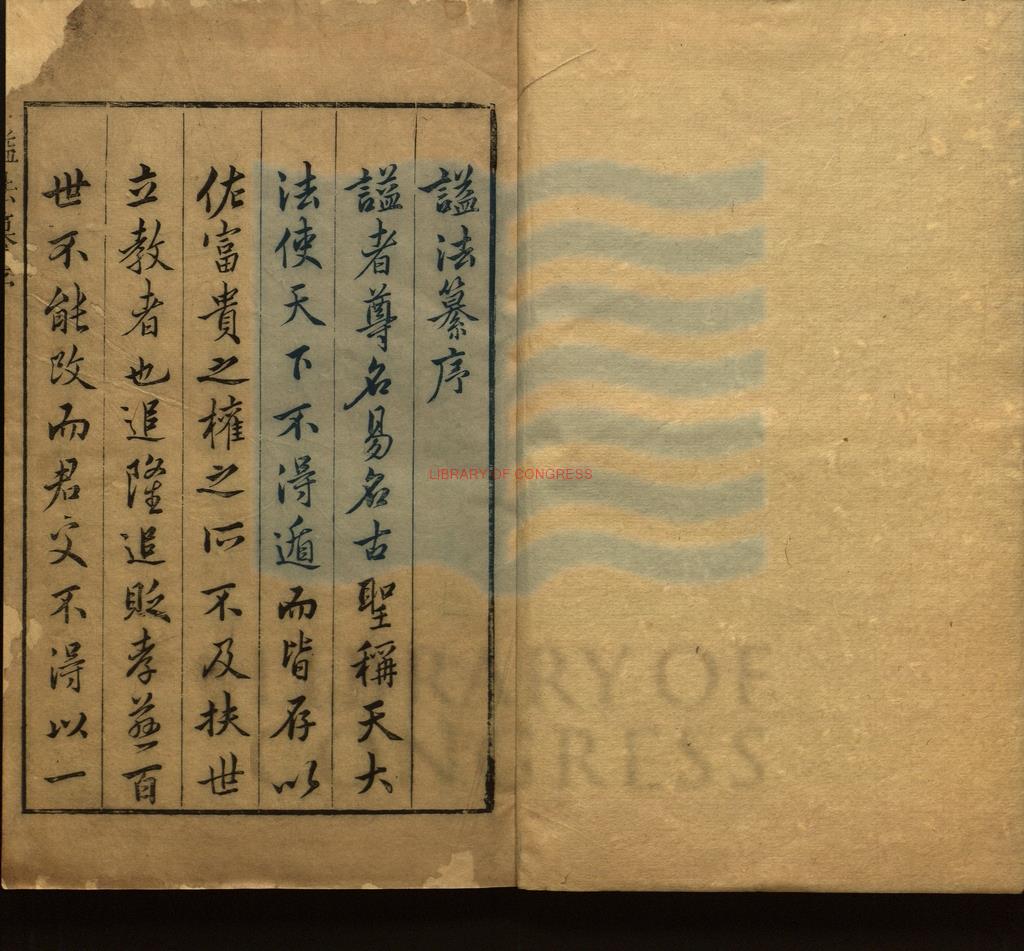 謚法纂序
謚者尊名易名古聖稱天大
法使天下不得遁而皆存以
佐富貴之權之所不及扶世
立教者也追隆追貶孝慈百
世不能改而君父不得以一
謚法纂序
LIBRARY OF CONGRESS
LIBRARY OF
CONGRESS